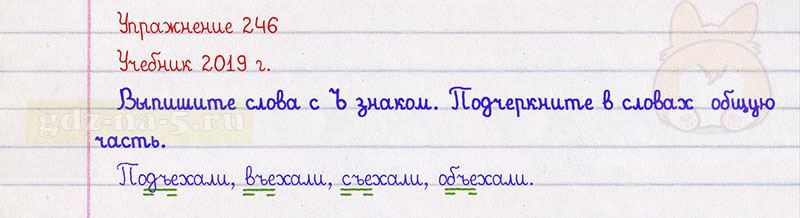 Упражнение 246
Учебник 2019 г.
Выпишите слова с Ъ знаком. Подчеркните в словах общую
gdz-na-5.ru
часть.
Подъехали, въехали, съехали, объехали.